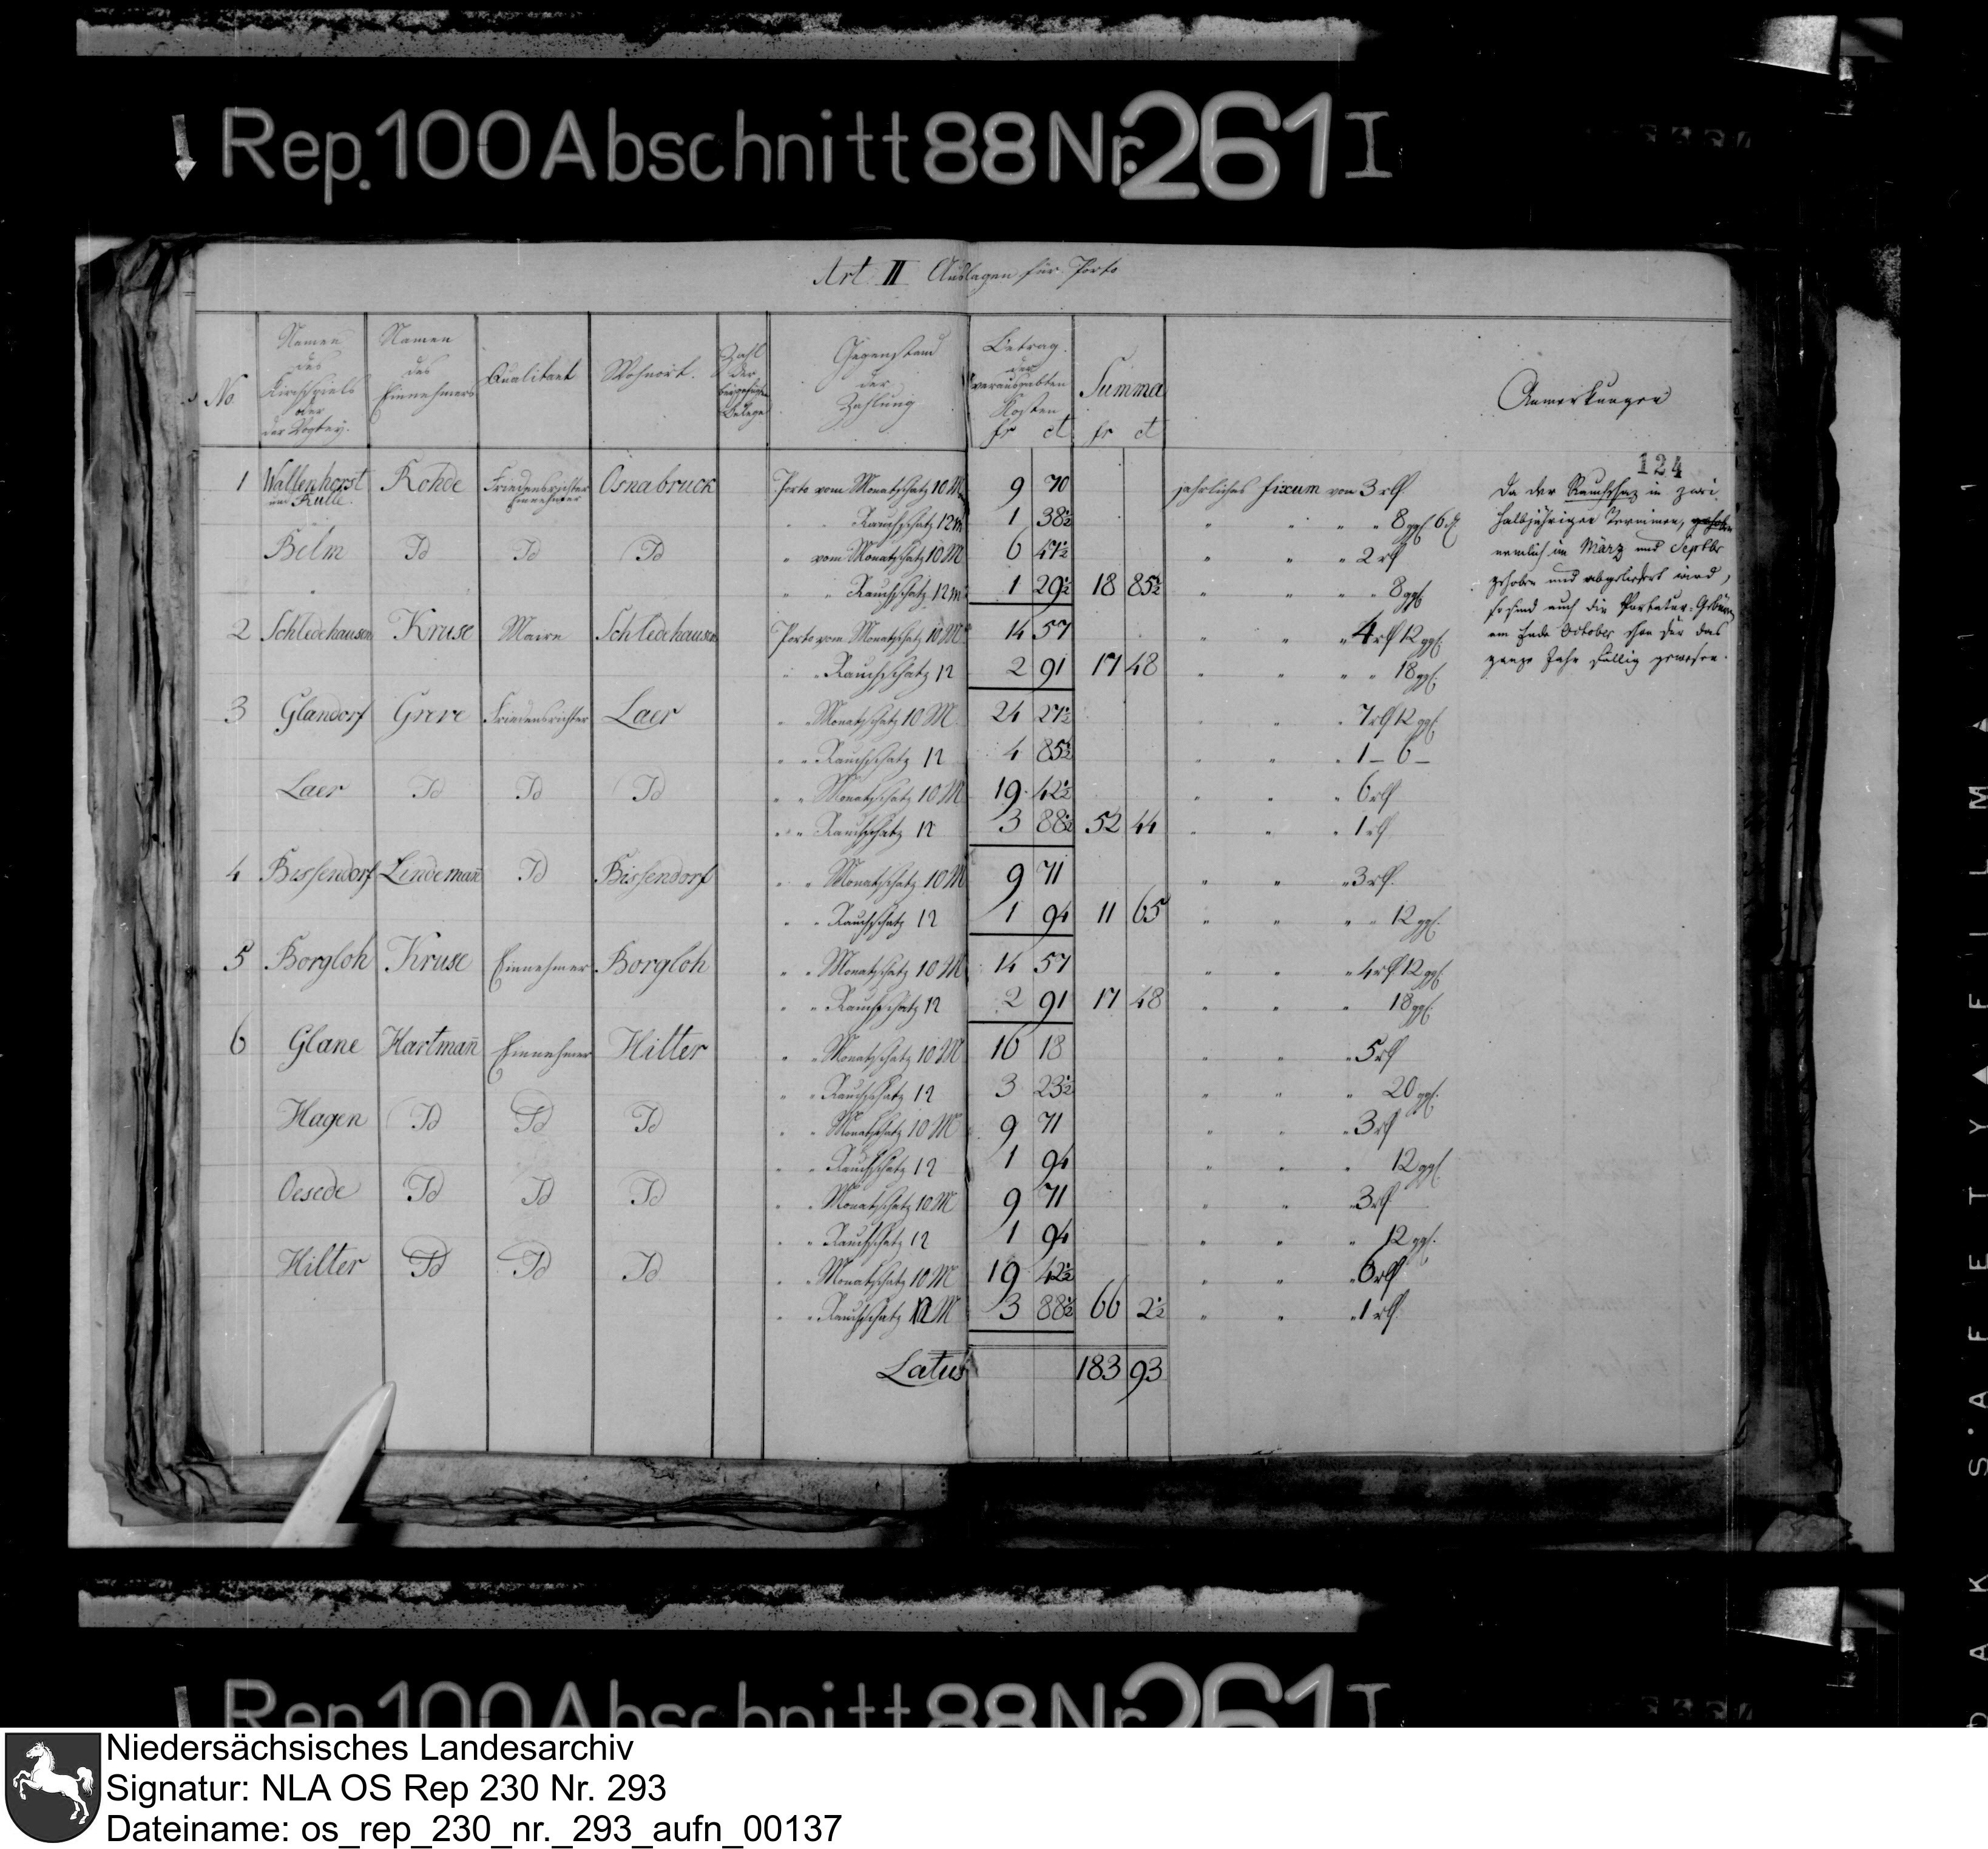 Rep. 100 Abschnitt 88 Nr. 261 I
Art. II Auslagen für Porto
No. | Namen des Kirchspiels oder der Vogtey. | Namen des Einnehmers | Qualitaet | Wohnort. | Zahl der beigefügten Belege | Gegenstand der Zahlung | Betrag der verausgabten Kosten fr ct | Summa fr ct | Anmerkungen
124
1 Wallenhorst und Rulle. Rohde Friedensrichter Einnehmer Osnabruck Porto vom Monatschatz 10 M 9 70 jahrliches fixum von 3 rlh
" " Rauchschatz 12 M 1 38½ " " " " 8 ggl 6 d
Belm Id Id Id " vom Monatschatz 10 M 6 47½ " " " 2 rlh
" " Rauchschatz 12 M 1 29½ 18 85½ " " " " 8 ggl
2 Schledehausen Kruse Maire Schledehausen Porto vom Monatschatz 10 M 14 57 " " " 4 rlh 12 ggl.
" " Rauchschatz 12 2 91 17 48 " " " " 18 ggl.
3 Glandorf Greve Friedensrichter Laer " Monatschatz 10 M 24 27½ " " " 7 rlh 12 ggl.
" " Rauchschatz 12 4 85½ " " " 1 – 6 –
Laer Id Id Id " " Monatschatz 10 M 19 42½ " " " 6 rlh
" " Rauchschatz 12 3 88½ 52 44 " " " 1 rlh
4 Bissendorf Lindemañ Id Bissendorf " " Monatschatz 10 M 9 71 " " " 3 rlh.
" " Rauchschatz 12 1 94 11 65 " " " " 12 ggl.
5 Borgloh Kruse Einnehmer Borgloh " " Monatschatz 10 M 14 57 " " " 4 rlh 12 ggl.
" " Rauchschatz 12 2 91 17 48 " " " 18 ggl.
6 Glane Hartmañ Einnehmer Hilter " " Monatschatz 10 M 16 18 " " " 5 rlh
" " Rauchschatz 12 3 23½ " " " 20 ggl.
Hagen Id Id Id " " Monatschatz 10 M 9 71 " " " 3 rlh
" " Rauchschatz 12 1 94 " " " 12 ggl.
Oesede Id Id Id " " Monatschatz 10 M 9 71 " " " 3 rlh
" " Rauchschatz 12 1 94 " " " 12 ggl.
Hilter Id Id Id " " Monatschatz 10 M 19 42½ " " " 6 rlh
" " Rauchschatz 12 M 3 88½ 66 2½ " " " 1 rlh.
Latus 183 93
Da der Rauchschaz in zwei
halbjährigen Terminen,
nemlich im März und Septbr
gehoben und abgeliefert wird,
so sind auch die Portatur-Gebüren
am Ende October schon für das
ganze Jahr fällig gewesen.
Rep. 100 Abschnitt 88 Nr. 261 I
Niedersächsisches Landesarchiv
Signatur: NLA OS Rep 230 Nr. 293
Dateiname: os_rep_230_nr._293_aufn_00137